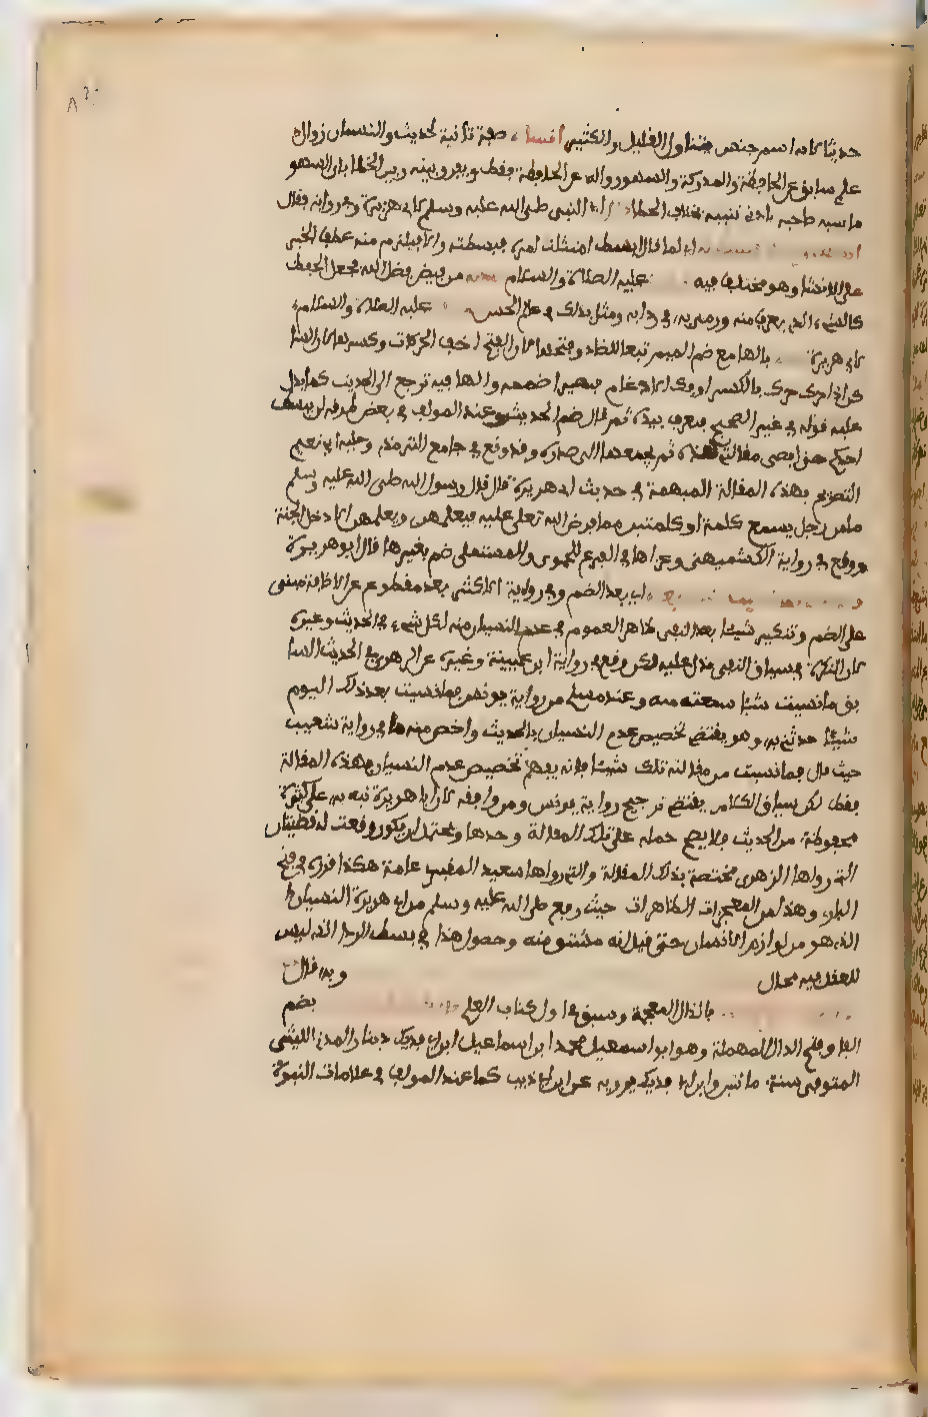 حديثا لانه اسم جنس يتناول القليل والكثير أنساه صفة ثانية لحديث والنسيان زوال
علم سابق عن الحافظة والمدركة والسهو زواله عن الحافظة فقط ويفرق بينه وبين الخطا بان السهو
ما ينبه صاحبه بادنى تنبيه بخلاف الخطا النبي صلى الله عليه وسلم لابي هريرة وفي رواية فقال
لما قال ابسط امتثلت امره فبسطته والا فيلزم منه عطف الخبر
على الانشا وهو مختلف فيه عليه الصلاة والسلام من فيض فضل الله فجعل الحفظ
كالشيء الذي يغرف منه ورمى به في ردايه ومثل بذلك في عالم الحس عليه الصلاة والسلام
لابي هريرة بالها مع ضم الميم تبعا للضاد وفتحها لان الفتح اخف الحركات وكسرها لان السا
كن اذا حرك حرك بالكسر او فك الادغام فيصير اضممه والها فيه ترجع الى الحديث كما يدل
عليه قوله في غير الصحيح فغرف بيده ثم قال ضم الحديث وعند المولف في بعض طرفه لن يبسط
احدكم حتى اقضي مقالتي هذه ثم يجمعها الى صدره وقد وقع في جامع الترمذي وحلية ابي نعيم
التصريح بهذه المقالة المبهمة في حديث ابي هريرة قال قال رسول الله صلى الله عليه وسلم
ما من رجل يسمع كلمة او كلمتين مما فرض الله تعلى عليه فيعلمهن ويعلمهن الا دخل الجنة
ووقع في رواية الكشميهني وعزاها في الفرع للحموي والمستملي ضم بغيرها قال ابو هريرة
اي بعد الضم وفي رواية الاكثر بعد مقطوع عن الاضافة مبنى
على الضم وتنكير شيئا بعد النفي ظاهر العموم في عدم النسيان منه لكل شيء في الحديث وغيره
لان النكرة في سياق النفي تدل عليه لكن وقع في رواية ابن عيينة وغيره عن الزهري في الحديث السا
بق ما نسيت شيا سمعته منه وعند مسلم من رواية يونس فما نسيت بعد ذلك اليوم
شيئا حدثني به وهو يقتضي تخصيص عدم النسيان بالحديث واخص منه ما في رواية شعيب
حيث قال فما نسيت من مقالته تلك شيئا فانه يفهم تخصيص عدم النسيان بهذه المقالة
فقط لكن سياق الكلام يقتضي ترجيح رواية يونس ومن وافقه لان ابا هريرة نبه به على كثرة
محفوظه من الحديث فلا يصح حمله على تلك المقالة وحدها ويحتمل ان يكون وقعت له قضيتان
التي رواها الزهري مختصة بذلك المقالة والتي رواها سعيد المقبري عامة هكذا قرره في فتح
الباري وهذا من المعجزات الظاهرات حيث رفع صلى الله عليه وسلم من ابي هريرة النسيان
الذي هو من لوازم الانسان حتى قيل انه مشتق منه وحصول هذا في بسط الردا الذي ليس
للعقل فيه مجال وبه قال
بالذال المعجمة وسبق في اول كتاب العلم بضم
الفا وفتح الدال المهملة وهو ابو اسمعيل محمد ابن اسماعيل ابن ابي فديك دينار المدني الليثي
المتوفى سنة مائتين وابن ابي فديك يرويه عن ابن ابي ذيب كما عند المولف في علامات النبوة